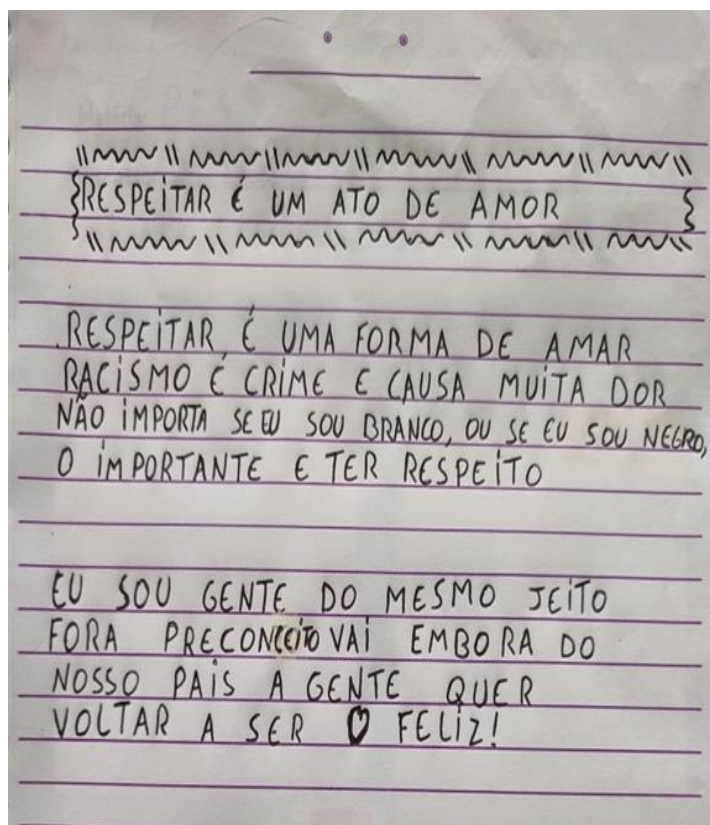 RESPEITAR É UM ATO DE AMOR
RESPEITAR É UMA FORMA DE AMAR
RACISMO É CRIME E CAUSA MUITA DOR
NÃO IMPORTA SE EU SOU BRANCO, OU SE EU SOU NEGRO,
O IMPORTANTE E TER RESPEITO
EU SOU GENTE DO MESMO JEITO
FORA PRECONCEITO VAI EMBORA DO
NOSSO PAIS A GENTE QUER
VOLTAR A SER FELIZ!